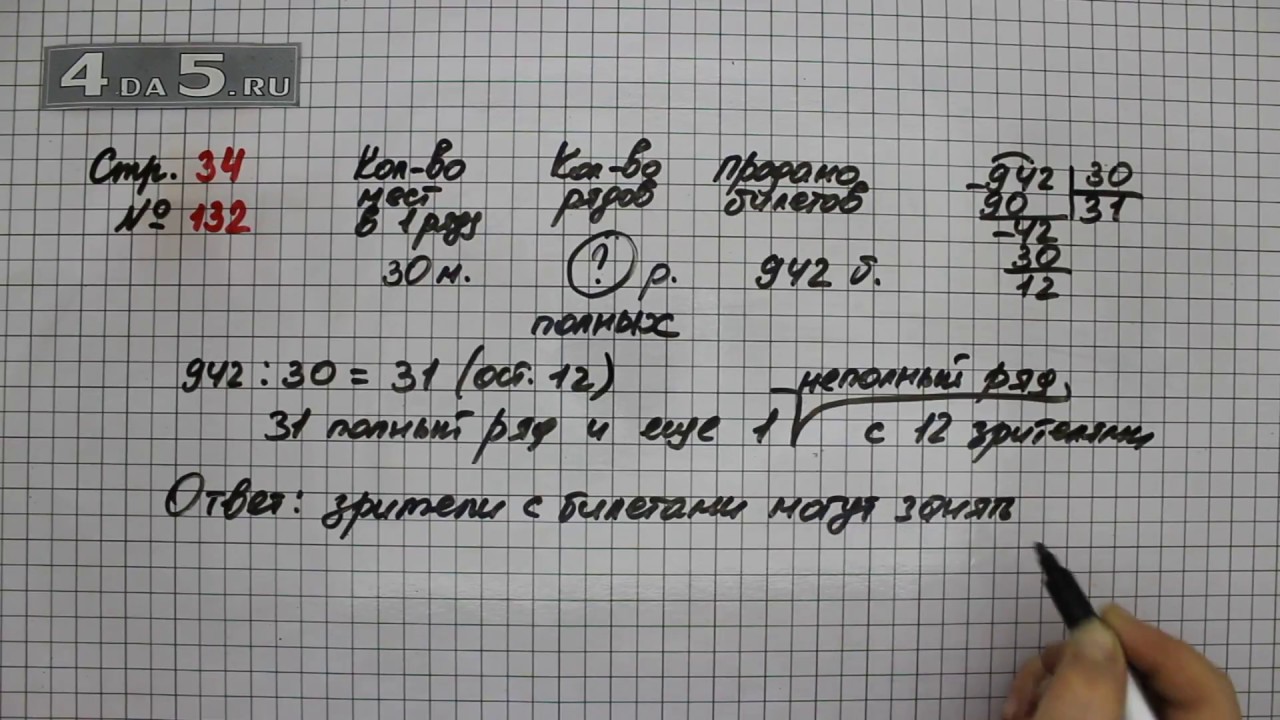 4DA5.RU
Стр. 34
№ 132
Кол-во мест в 1 ряду
Кол-во рядов
Продано билетов
30 м.
? р.
942 б.
полных
-942 30
90 31
-42
30
12
942 : 30 = 31 (ост. 12)
неполный ряд
31 полный ряд и еще 1 с 12 зрителями
Ответ: зрители с билетами могут занять